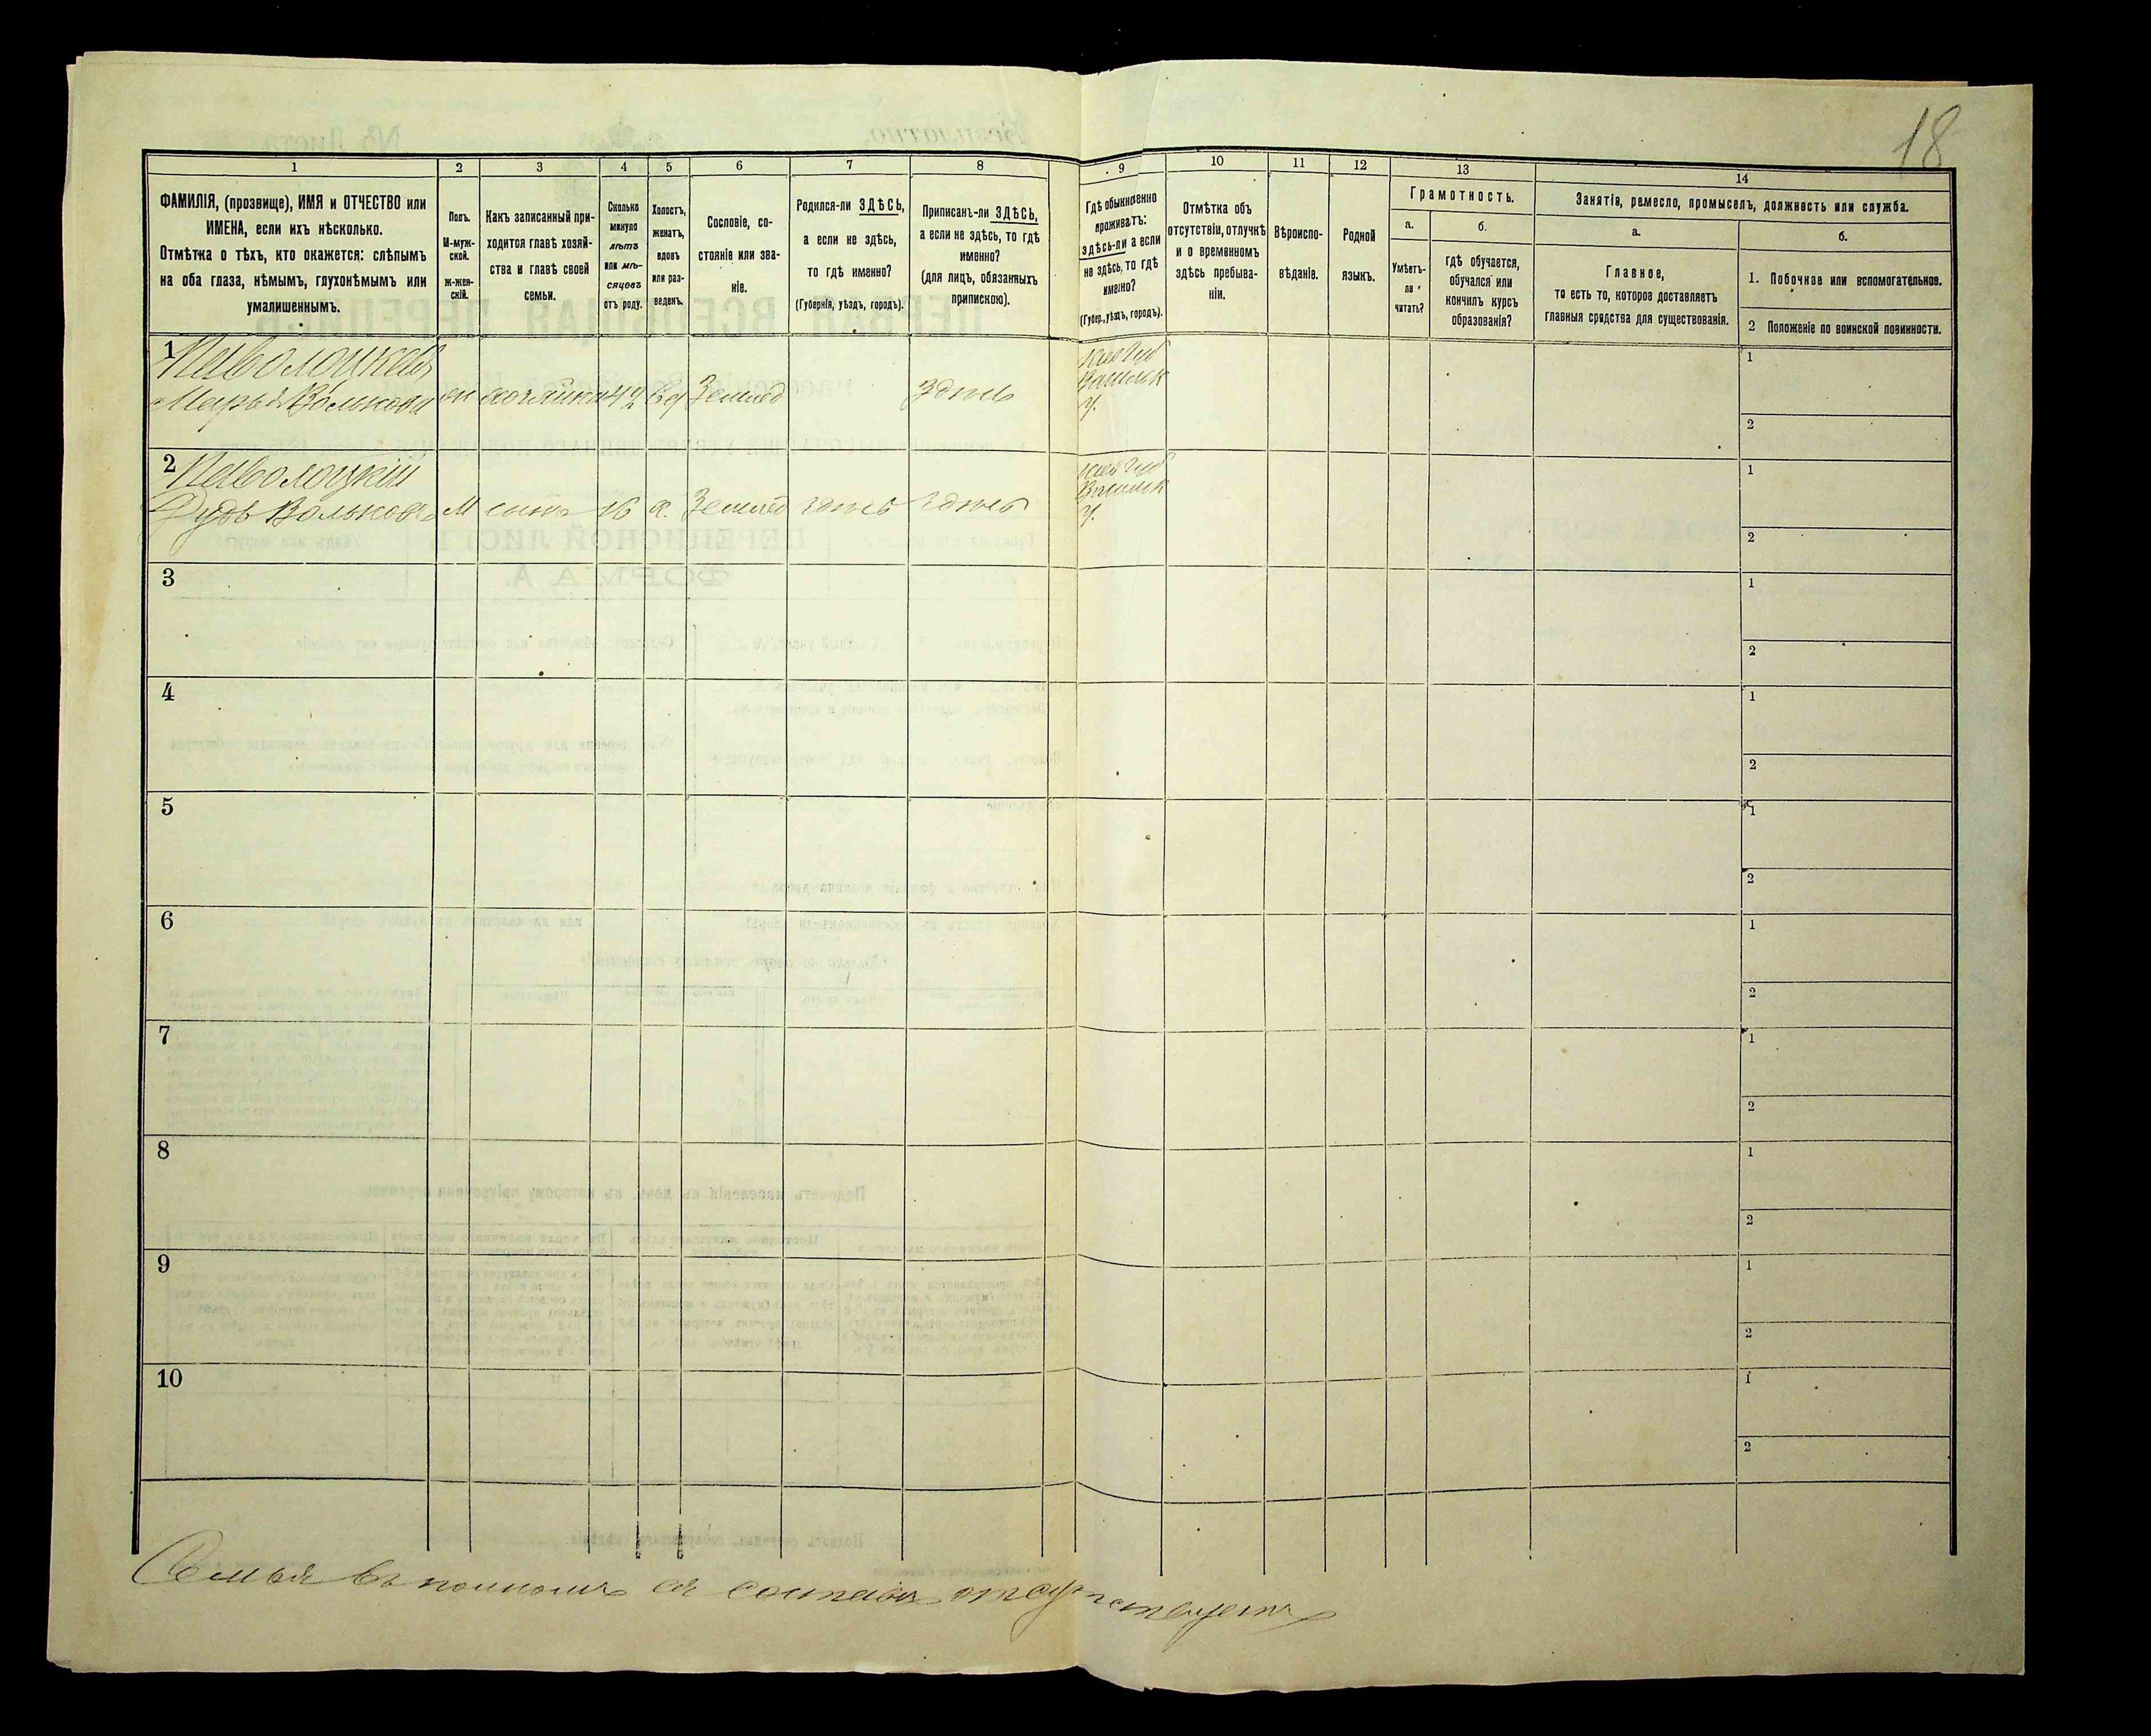 18
1 2 3 4 5 6 7 8 9 10 11 12 13 14
ФАМИЛІЯ, (прозвище), ИМЯ и ОТЧЕСТВО или
ИМЕНА, если ихъ нѣсколько.
Отмѣтка о тѣхъ, кто окажется: слѣпымъ
на оба глаза, нѣмымъ, глухонѣмымъ или
умалишеннымъ.
Полъ.
М-муж-
ской.
ж-жен-
скій.
Какъ записанный при-
ходится главѣ хозяй-
ства и главѣ своей
семьи.
Сколько
минуло
лѣтъ
или мѣ-
сяцевъ
отъ роду.
Холостъ,
женатъ,
вдовъ
или раз-
веденъ.
Сословіе, со-
стояніе или зва-
ніе.
Родился-ли ЗДѢСЬ,
а если не здѣсь,
то гдѣ именно?
(Губернія, уѣздъ, городъ).
Приписанъ-ли ЗДѢСЬ,
а если не здѣсь, то гдѣ
именно?
(для лицъ, обязанныхъ
припискою).
Гдѣ обыкновенно
проживаетъ:
здѣсь-ли а если
не здѣсь, то гдѣ
именно?
(Губер., уѣздъ, городъ).
Отмѣтка объ
отсутствіи, отлучкѣ
и о временномъ
здѣсь пребыва-
ніи.
Вѣроиспо-
вѣданіе.
Родной
языкъ.
Грамотность.
а.
Умѣетъ-
ли
читать?
б.
гдѣ обучается,
обучался или
кончилъ курсъ
образованія?
Занятія, ремесло, промыселъ, должность или служба.
а.
Главное,
то есть то, которое доставляетъ
главныя средства для существованія.
б.
1. Побочное или вспомогательное.
2 Положеніе по воинской повинности.
1
Марья Волькова ж хозяйка вд Землед здѣсь
Киев Губ
Васильк
У.
1
2
2
Паволоцкій
Волькова М сынъ 16 х. Землед здѣсь здѣсь
Киев Губ
Васильк
У.
1
2
3
1
2
4
1
2
5
1
2
6
1
2
7
1
2
8
1
2
9
1
2
10
1
2
Семья въ полномъ ея составѣ отсутствуетъ